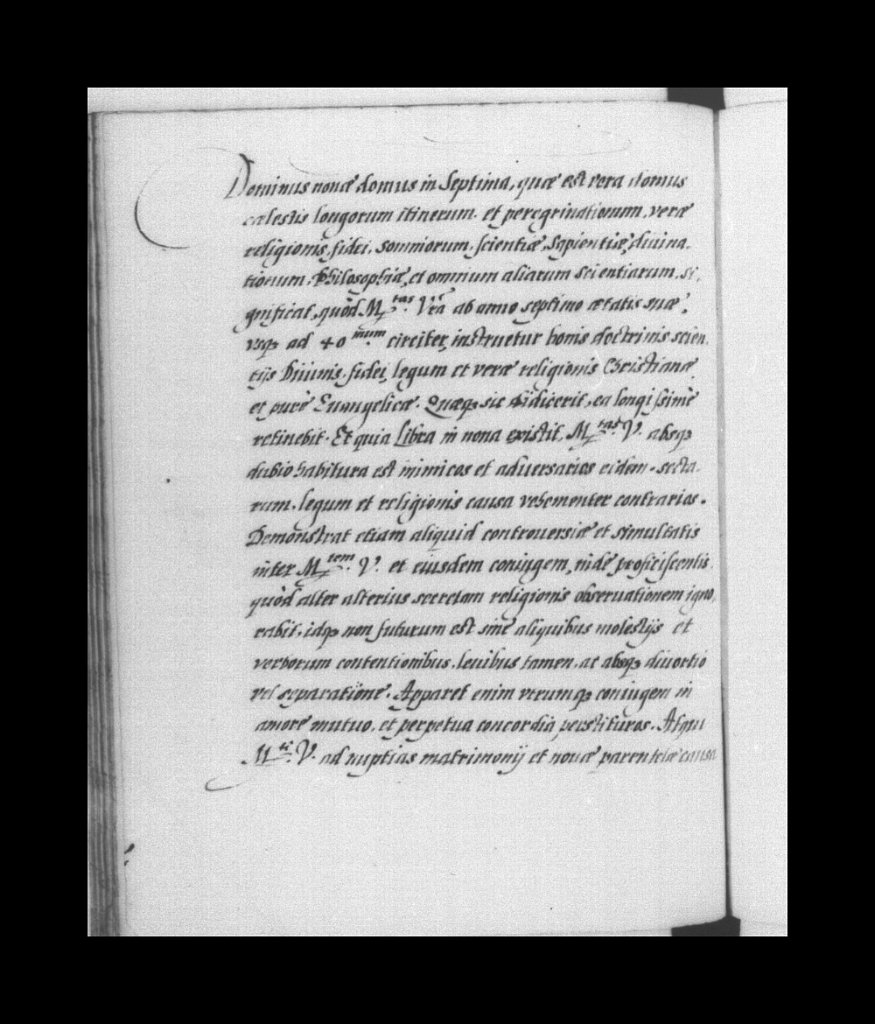 Dominus nonæ domus in Septima, quæ est vera domus
cælestis longorum itinerum, et peregrinationum, veræ
religionis, fidei, somniorum, scientiæ, Sapientiæ, diuina-
tionum, Philosophiæ, et omnium aliarum scientiarum, si-
gnificat, quòd M.tas Vra ab anno septimo ætatis suæ,
vsq; ad 40 num. circiter, instruetur bonis doctrinis scien-
tijs Diuinis, fidei, legum et veræ religionis Christianæ
et puræ Euangelicæ. Quæq; sic didicerit, ea longissimè
retinebit. Et quia Libra in nona existit, M.tas V. absq;
dubio habitura est inimicos et aduersarios eidem, secta-
rum, legum et religionis causa vehementer contrarios.
Demonstrat etiam aliquid controuersiæ et simultatis
inter M.tem V. et eiusdem coniugem, inde proficiscentis
quòd alter alterius secretam religionis obseruationem igno-
rabit, idq; non futurum est sine aliquibus molestijs et
verborum contentionibus, leuibus tamen, ac absq; diuortio
vel separatione. Apparet enim vtrumq; coniugem in
amore mutuo, et perpetua concordia perstituros. Atqui
M.ti V. ad nuptias matrimonij et nouæ parentelæ causa